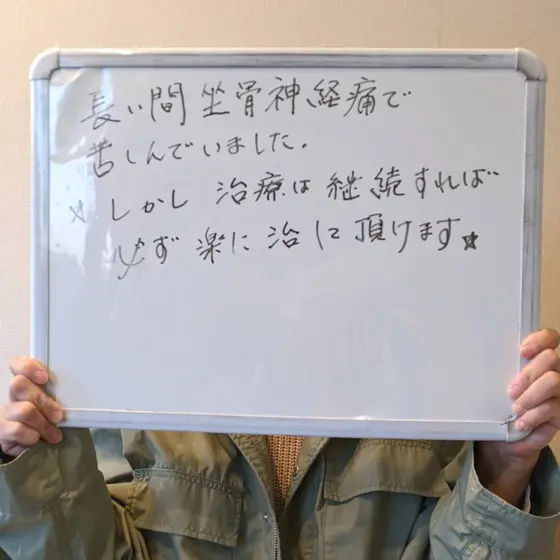 長い間 坐骨神経痛で
苦しんでいました.
☆ しかし 治療は継続すれば
必ず 楽に 治して頂けます☆